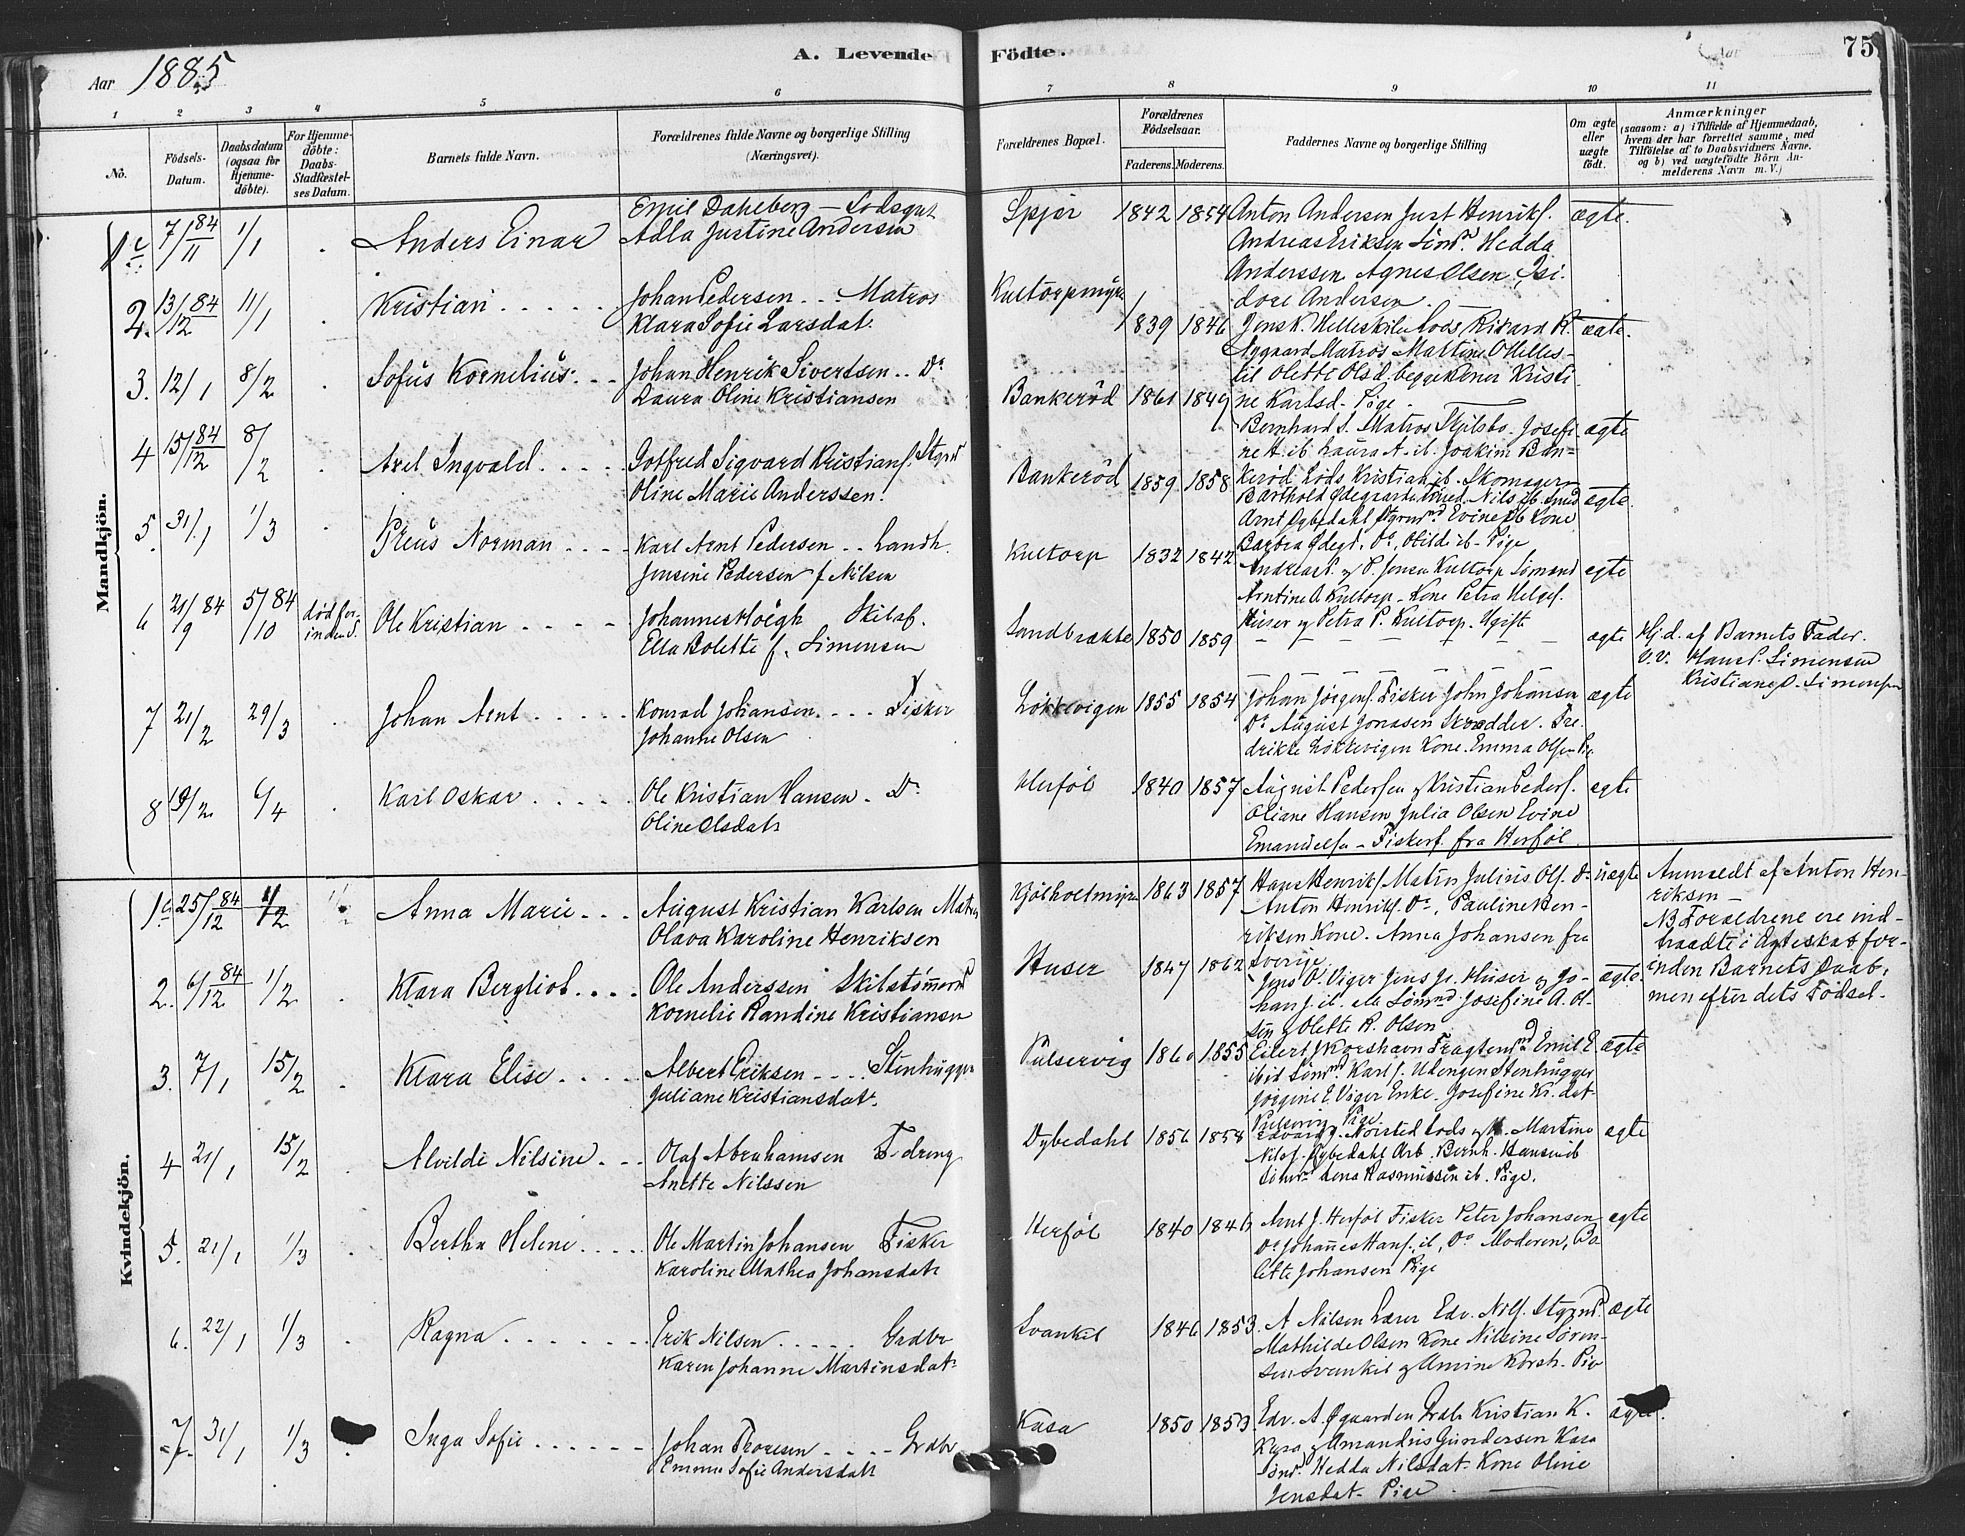 Aar 1885
A. Levende Födte.
Aar
75
1 2 3 4 5 6 7 8 9 10 11
No.
Födsels-Datum.
Daabsdatum (ogsaa for Hjemmedöbte).
For Hjemmedöbte: Daabs-Stadfæstelses Datum.
Barnets fulde Navn.
Forældrenes fulde Navne og borgerlige Stilling (Næringsvei).
Forældrenes Bopæl.
Forældrenes Födselsaar.
Faderens. Moderens.
Faddernes Navne og borgerlige Stilling
Om ægte eller uægte födt.
Anmærkninger
(saasom: a) i Tilfælde af Hjemmedaab,
hvem der har forrettet samme, med
Tilföielse af to Daabsvidners Navne,
og b) ved uægtefödte Börn An-
melderens Navn m. V.)
Mandkjön.
7/11 84 1/1 Anders Einar
Emil Dahlberg — Lodsgut
Adla Justine Andersen
Spjær 1842 1854
Anton Andersen Just Henriks.
Andreas Eriksen Sömd. Hedda
Anderssen Agnes Olsen, Isi-
dore Andersen.
ægte.
2. 13/12 84 11/1 Kristian
Johan Pedersen . . Matros
Klara Sofie Larsdat.
Kultorpmyr 1839 1846
Jens K. Helleskilen Lods Rikard R.
Matros Martine O Helles-
kil Olette Olsd. begge Koner Kristi-
ne Karlsd. Pige.
ægte.
3. 12/1 8/2 Sofus Kornelius
Johan Henrik Sivertsen . . Do
Laura Oline Kristiansen
Bankeröd 1861 1849
Bernhard S. Matros Skjelsbo. Josefi-
ne A. ib. Laura A. ib. Joakim Ban-
keröd Lods Kristian ib. Skomager
ægte
4 15/12 84 8/2 Axel Ingvald
Gotfred Sigvard Kristians. Styrmd
Oline Marie Anderssen.
Bankeröd 1859 1858
Barthold Ödegaard Nils ib. Smed
Arnt Dybedahl Styrmnd Evine ib Kone
Barbra Ödegd. Do, Otilde ib. Pige
ægte.
5. 31/1 1/3 Preus Norman
Karl Arnt Pedersen . . Landh.
Jensine Pedersen f. Nilsen
Kultorp 1832 1842
Andreas P. og P. Jensen Kultorp Sömænd
Arntine A Kultorp. Kone Petra Helges.
Huser og Petra P. Kultorp. Ugift
ægte
6 21/9 84 5/10 84 död forinden S. Ole Kristian
Johannes Höegh Skilsf.
Ella Bolette f. Simensen
Sandbrække 1850 1859
ægte
Hj. d. af Barnets Fader.
V. V. Hans P. Simensen
Kristiane O. Simensen
7 21/2 29/3 Johan Arnt
Konrad Johansen . . . Fisker
Johanne Olsen
Lökkevigen 1855 1854
Johan Jörgens. Fisker John Johansen
Do August Jonasen Skrædder. Fre-
drikke Lökkevigen Kone. Emma Olsen Pi.
ægte
8 19/2 6/4 Karl Oskar
Ole Kristian Hansen . Do
Oline Olsdatr
Herföl 1840 1857
August Pedersen og Kristian Peders.
Oliane Hansen Julia Olsen Evine
Emanuelsen — Fiskerf. fra Herföl.
ægte
Kvindekjön.
1. 25/12 84 1/2 Anna Marie
August Kristian Karlsen Matros
Olava Karoline Henriksen
Kjölholtmyr 1863 1857
Hans Henriks. Matros Julius Ols. Do
Anton Henriks. Do, Pauline Hen-
riksen Kone. Anna Johansen fra
Sverige
uægte
Anmeldt af Anton Hen-
riksen —
NB Forældrene ere ind-
traadte i Ægteskab for-
inden Barnets Daab,
men efter dets Födsel.
2. 6/12 84 1/2 Klara Bergliot
Ole Anderssen Skilstömmermd
Kornelie Randine Kristiansen
Huser 1847 1862
Jens O. Viger Jens Je. Huser og Jo-
hans. ib. alle Sömnd Josefine A. Ol-
sen og Olette R. Olsen
ægte
3. 7/1 15/2 Klara Elise
Albert Eriksen . . . Stenhugger
Juliane Kristiansdatr.
Pulservig 1860 1855
Eilert J Korshavn Fragtemd Emil E
ibid Sömnd. Karl J. Udengen Stenhugger
Jörgine E. Viger Enke. Josefine Kr. dat.
Pulservig Pige
ægte
4 21/1 15/2 Alvilde Nilsine
Olaf Abrahamsen F. dreng
Anette Nilssen
Dybedahl 1856 1858
Edvard J. Nörsted Lods og Martine
Nilsf. Dybedahl Arb. Bernh. Hansen ib
Sömd Lena Rasmussen ib. Pige.
ægte
5. 21/1 1/3 Bertha Helene
Ole Martin Johansen Fisker
Karoline Mathea Johansdatr
Herföl 1840 1846
Arnt J. Herföl Fisker Peter Johansen
Do Johannes Hans. ib, Do Moderen, Bo-
lette Johansen Pige
ægte
6. 22/1 1/3 Ragna
Erik Nilsen . . . . Grdbr
Karen Johanne Martinsdatr
Svankil 1846 1853
A Nilsen Lærer Edv. Nils. Styrmd.
Mathilde Olsen Kone Nilsine Sören-
sen Svankil og Amine Korsh. Pige
ægte
7. 31/1 1/3 Inga Sofie
Johan Thoresen . . . Grdbr
Emma Sofie Andersdatr
Kasa 1850 1853
Edv. A. Øgaarden Grdb. Kristian K.
Kasa og Amandus Gundersen Kasa
Sömd. Hedda Nilsdat. Kone Oline
Jensdat. Pige.
ægte.